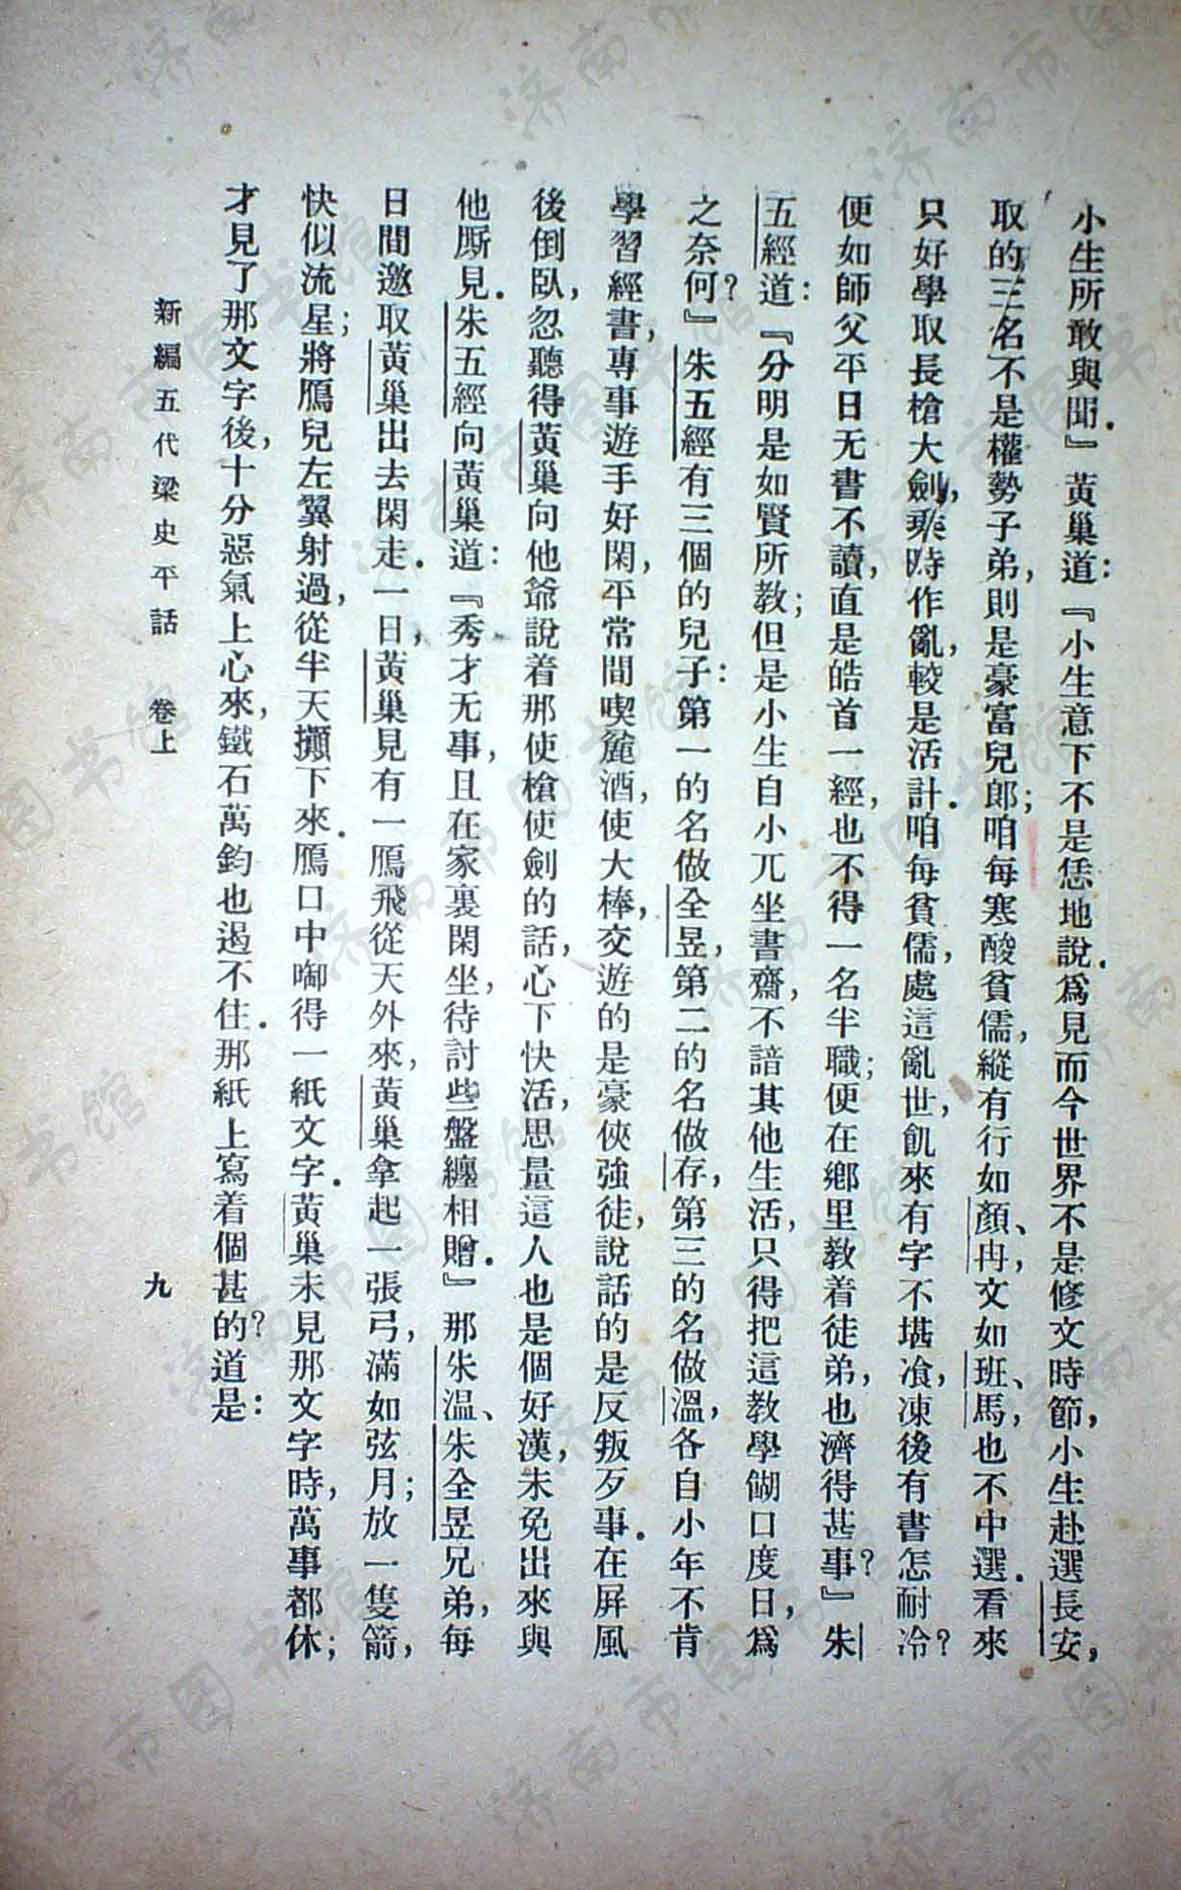 小生所敢與聞.』黃巢道:『小生意下不是恁地說.爲見而今世界不是修文時節,小生赴選長安,
取的三名不是權勢子弟,則是豪富兒郎;咱每寒酸貧儒,縱有行如顏、冉,文如班、馬,也不中選.看來
只好學取長槍大劍,乘時作亂,較是活計.咱每貧儒,處這亂世,飢來有字不堪飡,凍後有書怎耐冷?
便如師父平日无書不讀,直是皓首一經,也不得一名半職;便在鄉里教着徒弟,也濟得甚事?』朱
五經道:『分明是如賢所教;但是小生自小兀坐書齋,不諳其他生活,只得把這教學餬口度日,爲
之奈何?』朱五經有三個的兒子:第一的名做全昱,第二的名做存,第三的名做溫,各自小年不肯
學習經書,專事遊手好閑,平常間喫麄酒,使大棒,交遊的是豪俠強徒,說話的是反叛歹事.在屏風
後倒臥,忽聽得黃巢向他爺說着那使槍使劍的話,心下快活,思量這人也是個好漢,未免出來與
他厮見.朱五經向黃巢道:『秀才无事,且在家裏閑坐,待討些盤纏相贈.』那朱溫、朱全昱兄弟,每
日間邀取黃巢出去閑走.一日,黃巢見有一鴈飛從天外來,黃巢拿起一張弓,滿如弦月;放一隻箭,
快似流星;將鴈兒左翼射過,從半天攧下來.鴈口中啣得一紙文字.黃巢未見那文字時,萬事都休;
才見了那文字後,十分惡氣上心來,鐵石萬鈞也遏不住.那紙上寫着個甚的?道是:
新編五代梁史平話 卷上
九
济南市图书馆